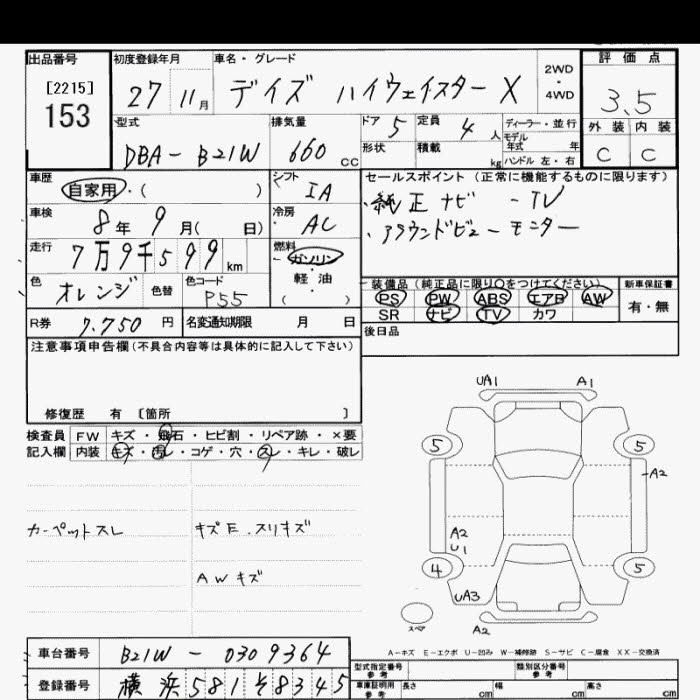 出品番号
[2215]
153
初度登録年月
27 11月
車名・グレード
デイズ ハイウェイスター X
2WD
・
4WD
評価点
3.5
外装 内装
C C
型式
DBA-B21W
排気量
660 cc
ドア 5
定員 4 人
形状
積載 kg
ディーラー・並行
モデル
年式 年
ハンドル 左・右
車歴
自家用・( )
シフト
IA
車検
8年 9月( 日)
冷房
AC
走行
7万9千599 km
燃料
ガソリン
・
軽油
( )
色
オレンジ 色替
色コード
P55
R券 7,750 円
名変通知期限 月 日
セールスポイント(正常に機能するものに限ります)
・純正ナビ -TV
・アラウンドビューモニター
装備品(純正品に限り○をつけてください)
PS PW ABS エアB AW
SR ナビ TV カワ
新車保証書
有・無
後日品
注意事項申告欄(不具合内容等は具体的に記入して下さい)
修復歴 有 〔箇所 〕
検査員 FW キズ・飛石・ヒビ割・リペア跡・×要
記入欄 内装 キズ・汚レ・コゲ・穴・スレ・キレ・破レ
カーペットスレ
キズE.スリキズ
AWキズ
UA1 A1
5 5
A2
A2
U1
4 5
UA3
スペア
A2
A-キズ E-エクボ U-凹み W-補修跡 S-サビ C-腐食 XX-交換済
車台番号 B21W-0309364
登録番号 横浜581そ8345
型式指定番号
参考
類別区分番号
参考
車庫証明用
参考
長さ cm 幅 cm 高さ cm